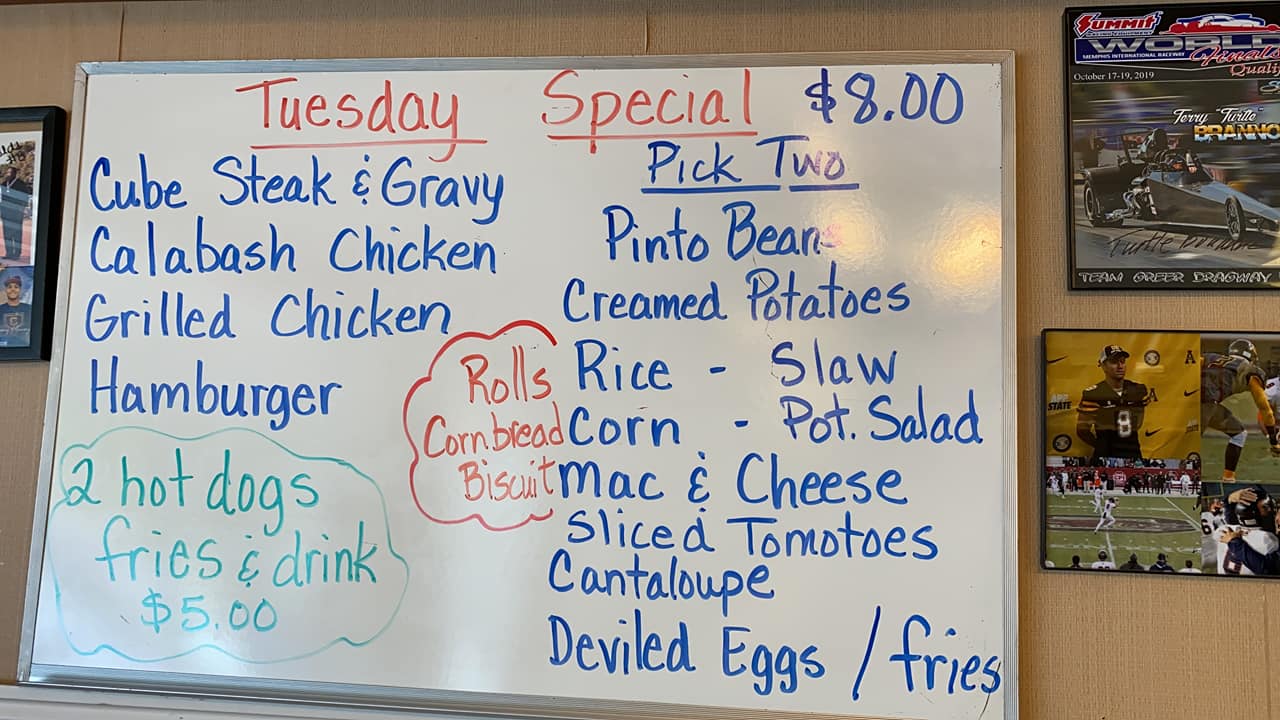 Tuesday Special $8.00
Cube Steak & Gravy
Calabash Chicken
Grilled Chicken
Hamburger
2 hot dogs
fries & drink
$5.00
Rolls
Corn.bread
Biscuit
Pick Two
Pinto Beans
Creamed Potatoes
Rice - Slaw
Corn - Pot. Salad
Mac & Cheese
Sliced Tomotoes
Cantaloupe
Deviled Eggs / fries
SUMMIT
WORLD
Finals
MEMPHIS INTERNATIONAL RACEWAY
October 17-19, 2019
Terry "Turtle"
BRANNO
TEAM GREER DRAGWAY
APP
STATE
A
8